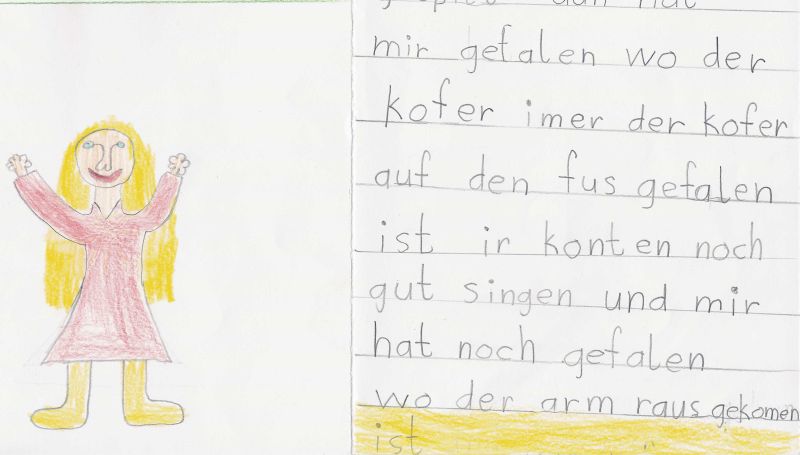 mir gefalen wo der
kofer imer der kofer
auf den fus gefalen
ist ir konten noch
gut singen und mir
hat noch gefalen
wo der arm raus gekomen
ist